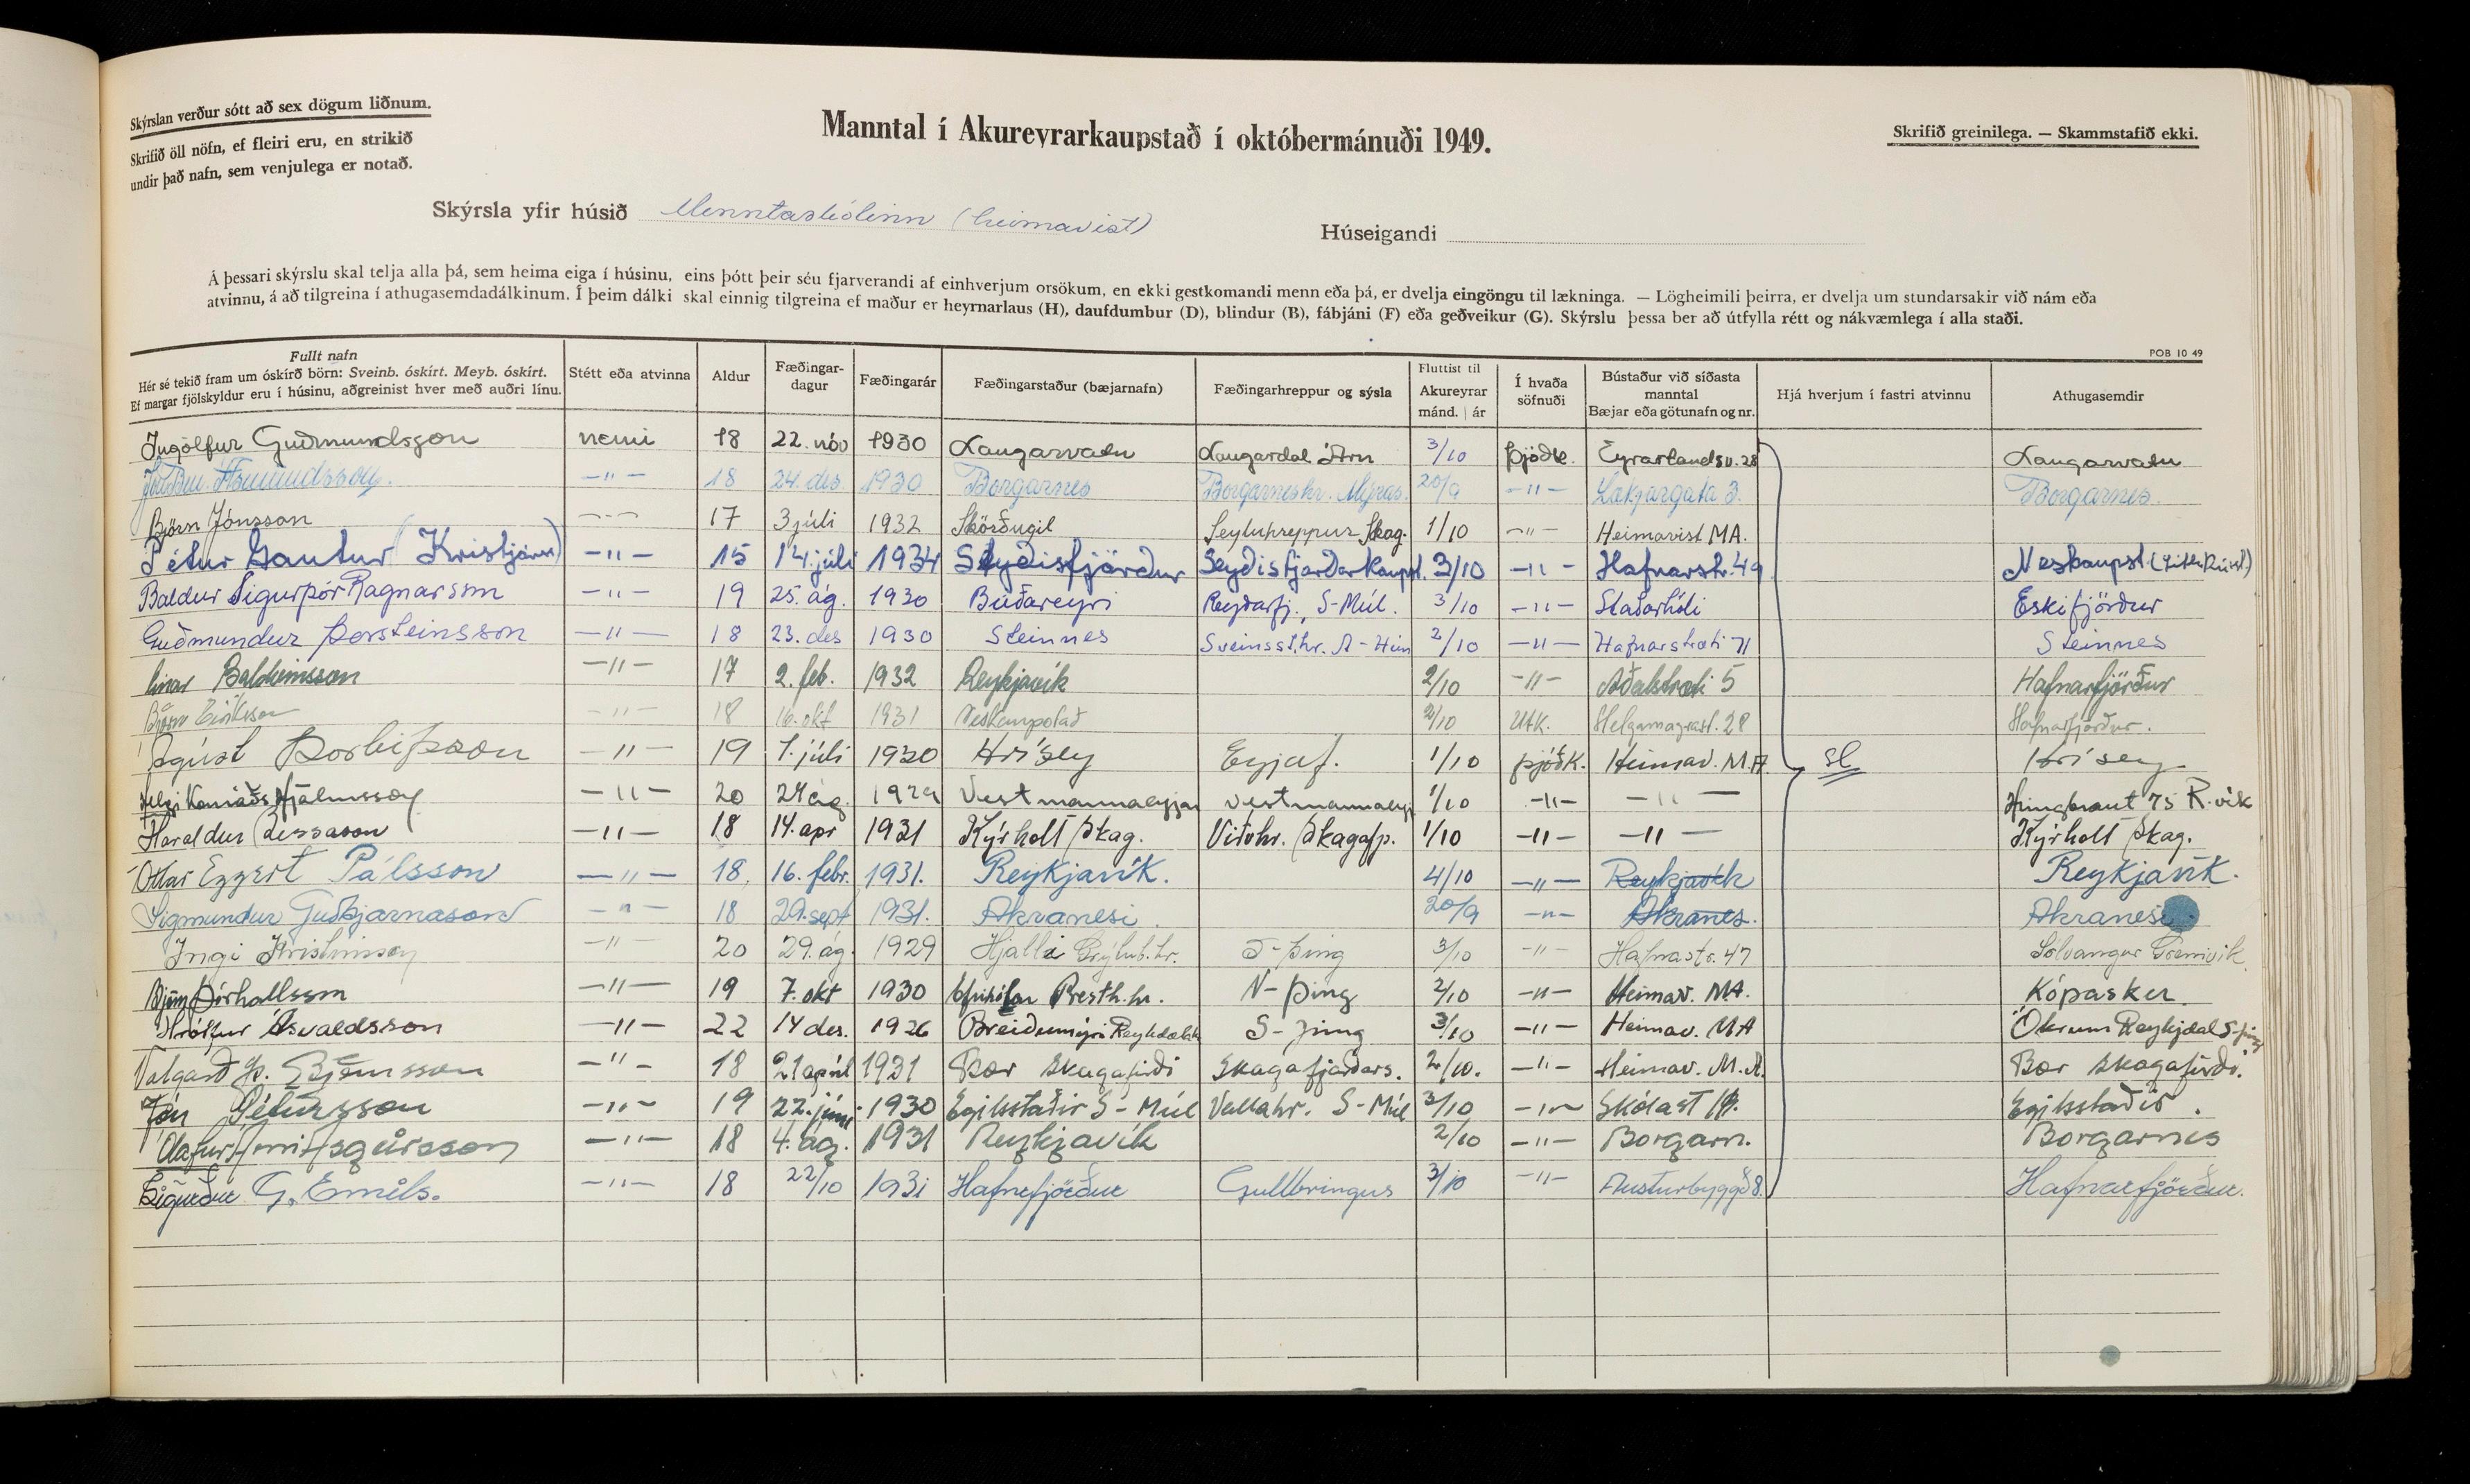 Skýrslan verður sótt að sex dögum liðnum.
Skrifið öll nöfn, ef fleiri eru, en strikið
undir það nafn, sem venjulega er notað.
Manntal í Akureyrarkaupstað í októbermánuði 1949.
Skrifið greinilega. — Skammstafið ekki.
Skýrsla yfir húsið Menntaskólinn (heimavist)
Húseigandi
Á þessari skýrslu skal telja alla þá, sem heima eiga í húsinu, eins þótt þeir séu fjarverandi af einhverjum orsökum, en ekki gestkomandi menn eða þá, er dvelja eingöngu til lækninga. — Lögheimili þeirra, er dvelja um stundarsakir við nám eða
atvinnu, á að tilgreina í athugasemdadálkinum. Í þeim dálki skal einnig tilgreina ef maður er heyrnarlaus (H), daufdumbur (D), blindur (B), fábjáni (F) eða geðveikur (G). Skýrslu þessa ber að útfylla rétt og nákvæmlega í alla staði.
POB 10 49
Fullt nafn
Hér sé tekið fram um óskírð börn: Sveinb. óskírt. Meyb. óskírt.
Ef margar fjölskyldur eru í húsinu, aðgreinist hver með auðri línu.
Stétt eða atvinna
Aldur
Fæðingar-
dagur
Fæðingarár
Fæðingarstaður (bæjarnafn)
Fæðingarhreppur og sýsla
Fluttist til
Akureyrar
mánd. | ár
Í hvaða
söfnuði
Bústaður við síðasta
manntal
Bæjar eða götunafn og nr.
Hjá hverjum í fastri atvinnu
Athugasemdir
Ingólfur Guðmundsson nemi 18 22. nóv 1930 Laugarvatn Laugardal Árn 3/10 þjóðk. Eyrarlandsv. 28 Laugarvatn
Ásmundsson. —"— 18 24. des. 1930 Borgarnes Borgarneshr. Mýras. 20/9 —"— Lækjargata 3. Borgarnes.
Björn Jónsson —"— 17 3 júlí 1932 Skörðugil Seyluhreppur Skag. 1/10 —"— Heimavist MA.
Pétur Gautur Kristjáns) —"— 15 14. júlí 1934 Seyðisfjörður Seyðisfjarðarkaupst. 3/10 —"— Hafnarstr. 49 Neskaupst.
Baldur Sigurþór Ragnarsson —"— 19 25. ág. 1930 Búðareyri Reyðarfj., S-Múl. 3/10 —"— Staðarhóli Eskifjörður
Guðmundur Þorsteinsson —"— 18 23. des 1930 Steinnes Sveinsst.hr. A-Hún 2/10 —"— Hafnarstræti 71 Steinnes
Einar Baldvinsson —"— 17 2. feb. 1932 Reykjavík 2/10 —"— Aðalstræti 5 Hafnarfjörður
Björn Eiríksson —"— 18 16. okt 1931 Neskaupstað 2/10 Utk. Helgamagrast. 28 Hafnarfjörður.
Ágúst Þorleifsson —"— 19 7. júlí 1930 Hrísey Eyjaf. 1/10 þjóðk. Heimav. M.A. sl Hrísey
Helgi Konráðs Hjálmsson —"— 20 24 ág. 1929 Vestmannaeyjar Vestmannaeyj 1/10 —"— —"— Hringbraut 75 R.vík
Haraldur Bessason —"— 18 14. apr 1931 Kýrholt Skag. Viðvhr. Skagafj. 1/10 —"— —"— Kýrholt Skag.
Ottar Eggert Pálsson —"— 18. 16. febr. 1931. Reykjavík. 4/10 —"— Reykjavík Reykjavík.
Sigmundur Guðbjarnason —"— 18 29. sept 1931. Akranesi. 20/9 —"— Akranes. Akranesi
Ingi Kristinsson —"— 20 29. ág. 1929 Hjalla Grýtub.hr. S-Þing 3/10 —"— Hafnastr. 47 Sólvangur Grenivík
Björn Þórhallsson —"— 19 7. okt 1930 Efrihólar Presth.hr. N-Þing 2/10 —"— Heimav. MA. Kópasker.
Hrólfur Ásvaldsson —"— 22 14 des. 1926 Breiðumýri Reykdælahr S-Þing 3/10 —"— Heimav. MA Ökrum Reykjadal S-Þing
Valgarð Þ. Björnsson —"— 18 21 apríl 1931 Bær Skagafirði Skagafjarðars. 2/10. —"— Heimav. M.A. Bær Skagafirði.
Jón Pétursson —"— 19 22. júní 1930 Egilsstaðir S-Múl Vallahr. S-Múl 3/10 —"— Skólast Egilsstaðir.
Ólafur Ásgeirsson —"— 18 4. ág. 1931 Reykjavík 2/10 —"— Borgarn. Borgarnes
Sigurður G. Emils. —"— 18 22/10 1931 Hafnefjörður Gullbringus 3/10 —"— Austurbyggð 8. Hafnarfjörður.